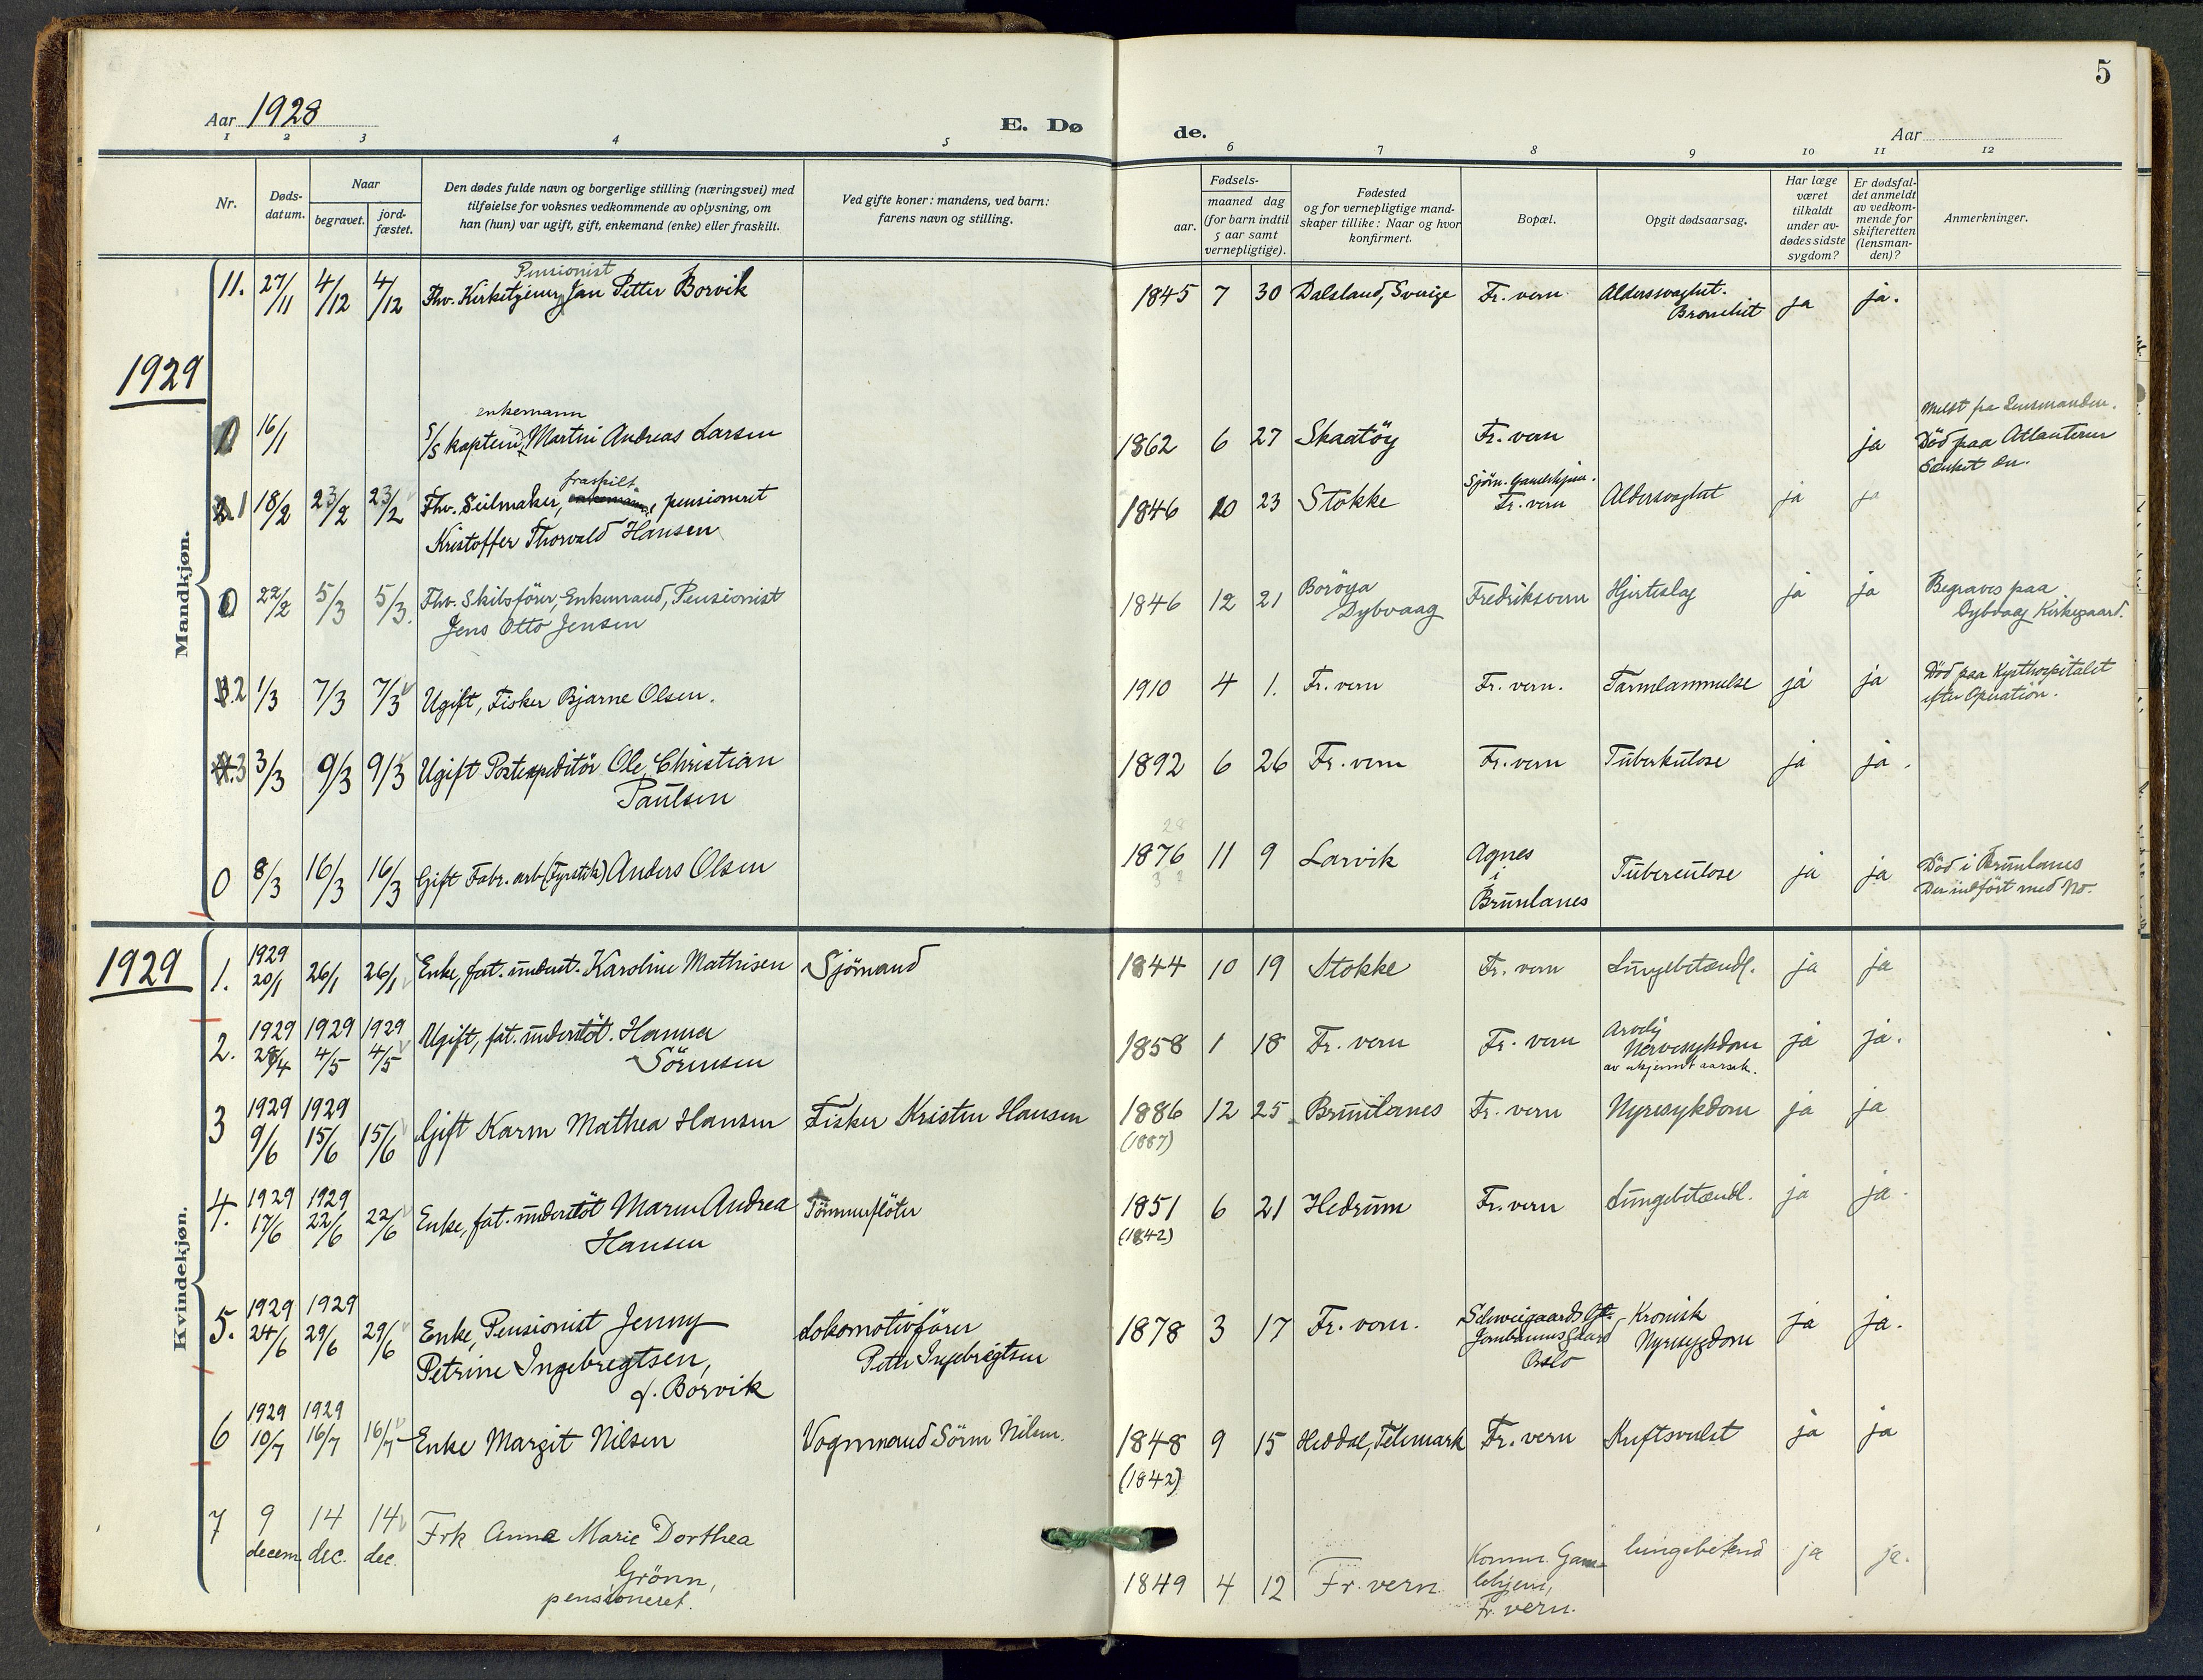 5
Aar 1928
E. Dø de.
Aar
1 2 3 4 5 6 7 8 9 10 11 12
Nr.
Døds-datum.
Naar
begravet.
jord-fæstet.
Den dødes fulde navn og borgerlige stilling (næringsvei) med
tilføielse for voksnes vedkommende av oplysning, om
han (hun) var ugift, gift, enkemand (enke) eller fraskilt.
Ved gifte koner: mandens, ved barn:
farens navn og stilling.
Fødsels-
aar.
maaned dag
(for barn indtil
5 aar samt
vernepligtige).
Fødested
og for vernepligtige mand-
skaper tillike: Naar og hvor
konfirmert.
Bopæl.
Opgit dødsaarsag.
Har læge
været
tilkaldt
under av-
dødes sidste
sygdom?
Er dødsfal-
det anmeldt
av vedkom-
mende for
skifteretten
(lensman-
den)?
Anmerkninger.
Mandkjøn.
Pensionist
11. 27/11 4/12 4/12 Fhv. Kirketjener Jan Petter Borvik 1845 7 30 Dalsland, Sverige Fr. vern Alderssvaghet. ja ja.
Bronchit
1929
enkemann
16/1 S/S kaptein, Martin Andreas Larsen 1862 6 27 Skaatöy Fr. vern ja
Meldt fra Lensmanden.
Död paa Atlanteren
Senket der.
fraskilt
1 18/2 23/2 23/2 Fhv. Seilmaker, pensioneret
Kristoffer Thorvald Hansen
1846 10 23 Stokke
Sjöm. Gamlehjem.
Fr. vern Aldersvaghet ja ja
0 22/2 5/3 5/3. Fhv. Skibsfører, Enkemand, Pensionist
Jens Otto Jensen
1846 12 21 Boröya
Dybvaag
Fredriksvern Hjerteslag ja ja
Begraves paa
Dybvaag Kirkegaard.
2 1/3 7/3 7/3 Ugift, Fisker Bjarne Olsen. 1910 4 1. Fr. vern Fr. vern. Tarmlammelse ja ja
Död paa Kysthospitalet
efter Operation.
3 3/3 9/3 9/3 Ugift Postexpeditör Ole Christian
Paulsen
1892 6 26 Fr. vern Fr. vern Tuberkulose ja ja.
0 8/3 16/3 16/3 Gift Fabr. arb (Fyrstik) Anders Olsen
28
1876 11 9 Larvik
Agnes
i
Brunlanes
Tuberculose ja ja
Död i Brunlanes
Der indfört med No.
Kvindekjøn.
1929
1. 1929 20/1 26/1 26/1 Enke, fat. underst. Karoline Mathisen Sjömand 1844 10 19 Stokke Fr. vern Lungebetændl. ja ja
2. 1929 28/4 1929 4/5 1929 4/5 Ugift, fat. understöt. Hanna
Sörensen
1858 1 18 Fr. vern Fr. vern
Arvelig
Nervesykdom
av ukjennt aarsak.
ja ja.
3 1929 9/6 1929 15/6 15/6 Gift Karen Mathea Hansen Fisker Kristen Hansen 1886 12 25 Brunlanes Fr. vern Nyresykdom ja ja
(1887)
4. 1929 17/6 1929 22/6 22/6 Enke, fat. understöt Maren Andrea
Hansen
Tömmerflöter 1851 6 21 Hedrum Fr. vern Lungebetændl. ja ja.
(1842)
5. 1929 24/6 1929 29/6 29/6 Enke, Pensionist Jenny
Petrine Ingebregtsen,
f. Borvik
Lokomotivförer
Petter Ingebrigtsen
1878 3 17 Fr. vern.
Schweigaards Gt.
Jernbanens Gaard
Oslo
Kronisk
Nyresygdom
ja ja.
6 1929 10/7 1929 16/7 16/7 Enke Margit Nilsen Vognmand Sören Nilsen. 1848 9 15 Heddal, Telemark Fr. vern Kreftsvulst ja ja
(1842)
7 9 decem 14 dec. 14 dec. Frk Anna Marie Dorthea
Grönn,
pensioneret.
1849 4 12 Fr. vern
Komm. Gam-
lehjem,
Fr. vern.
lungebetend ja ja.